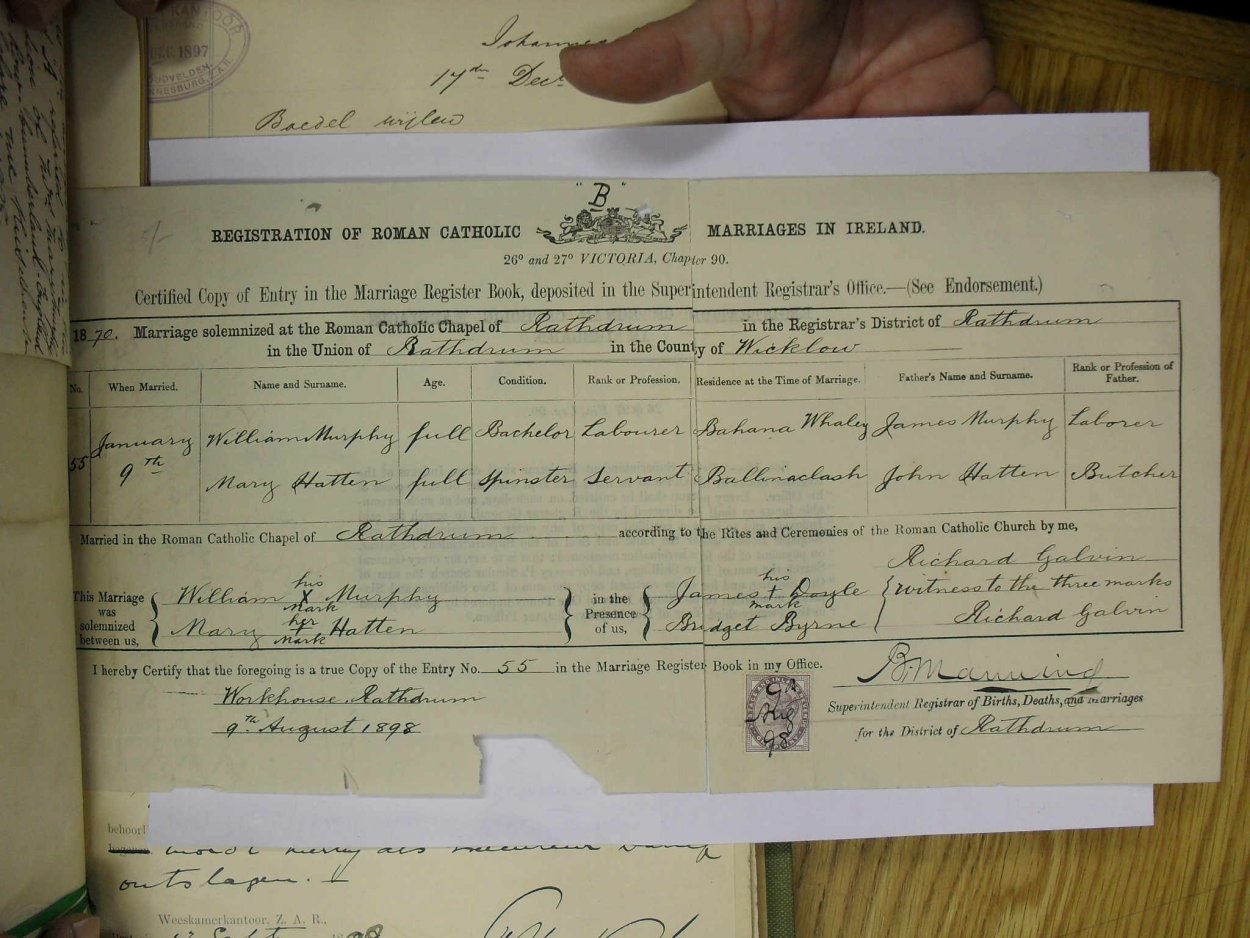 KANTOOR
DEC. 1897
Johannes
17de Decr
Boedel wijlen
"B"
REGISTRATION OF ROMAN CATHOLIC MARRIAGES IN IRELAND.
26° and 27° VICTORIA, Chapter 90.
Certified Copy of Entry in the Marriage Register Book, deposited in the Superintendent Registrar's Office.—(See Endorsement.)
1870. Marriage solemnized at the Roman Catholic Chapel of Rathdrum in the Registrar's District of Rathdrum
in the Union of Rathdrum in the County of Wicklow
No. When Married. Name and Surname. Age. Condition. Rank or Profession. Residence at the Time of Marriage. Father's Name and Surname. Rank or Profession of Father.
55 January 9th William Murphy full Bachelor Labourer Bahana Whaley James Murphy Laborer
Mary Hatten full Spinster Servant Ballinaclash John Hatten Butcher
Married in the Roman Catholic Chapel of Rathdrum according to the Rites and Ceremonies of the Roman Catholic Church by me,
Richard Galvin
This Marriage was solemnized between us,
William his X Mark Murphy
Mary her + Mark Hatten
in the Presence of us,
James his + mark Doyle
Bridget Byrne
witness to the three marks
Richard Galvin
I hereby Certify that the foregoing is a true Copy of the Entry No. 55 in the Marriage Register Book in my Office.
Workhouse Rathdrum
9th August 1898
9th
Aug
98
B. Manning
Superintendent Registrar of Births, Deaths, and Marriages
for the District of Rathdrum
behoorl
outslagen.
Weeskamerkantoor, Z. A. R.,